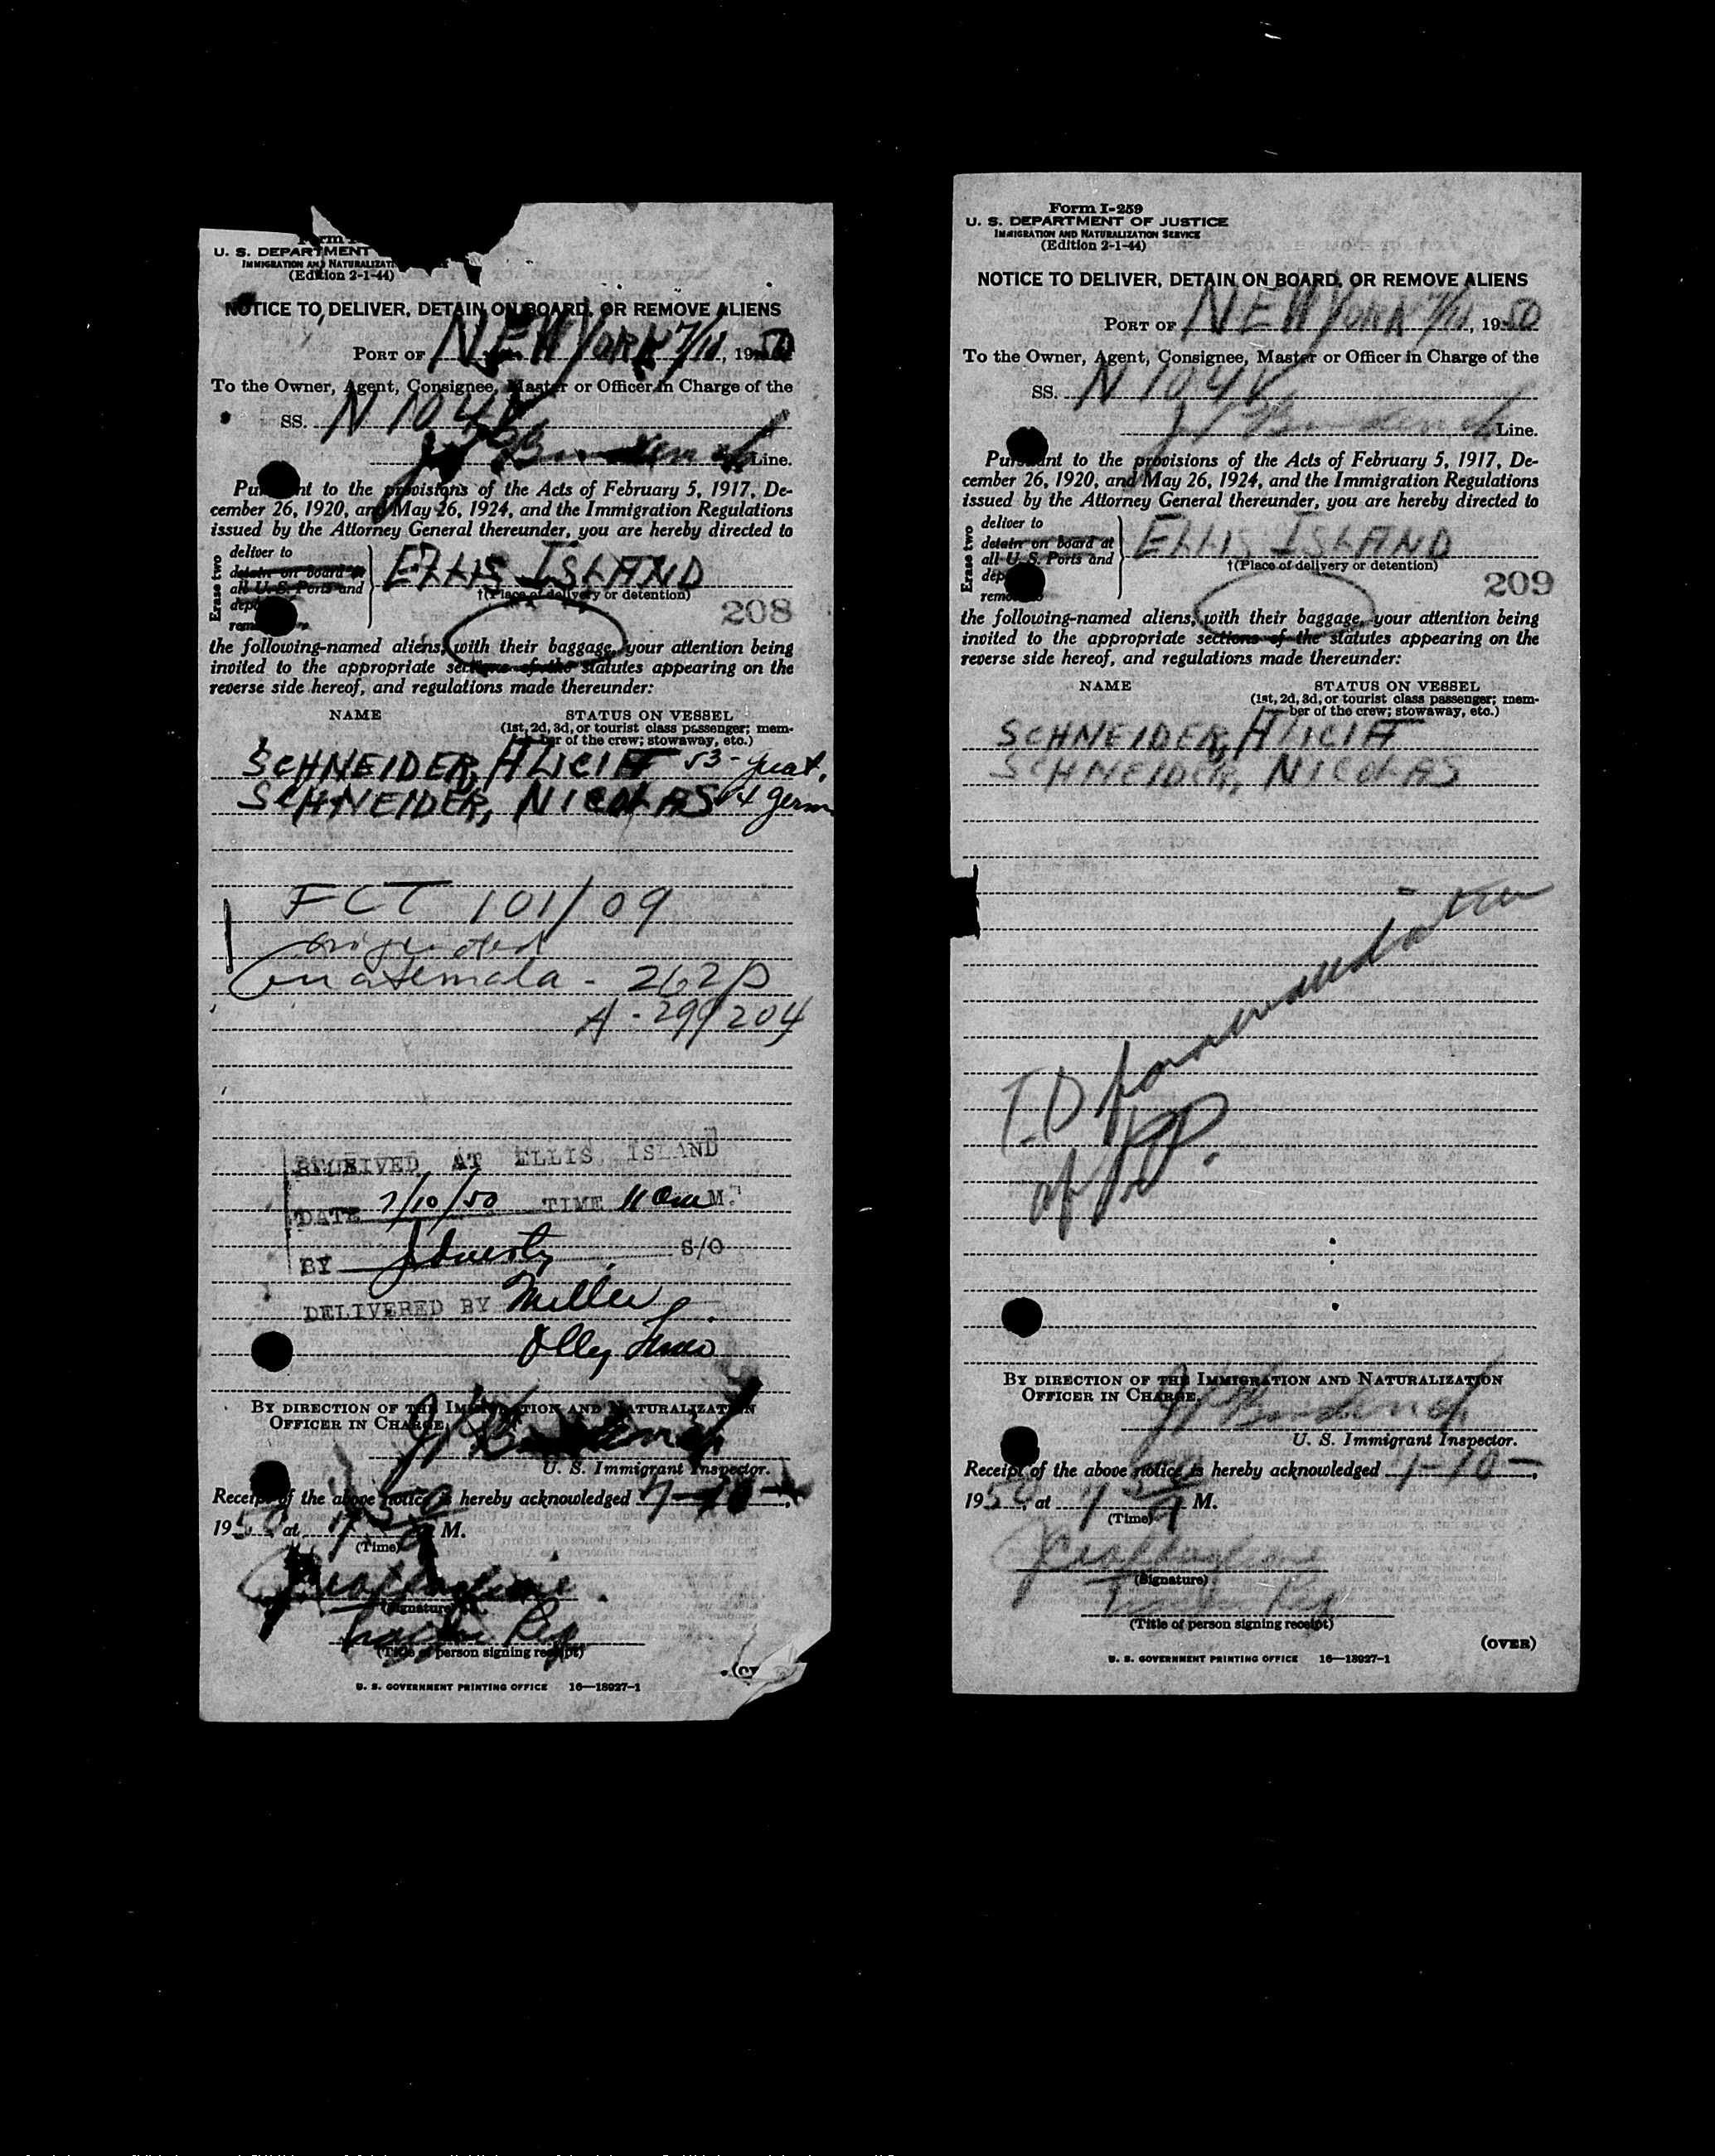 U. S. DEPARTMENT
IMMIGRATION AND NATURALIZATI
(Edition 2-1-44)
NOTICE TO DELIVER, DETAIN ON BOARD, OR REMOVE ALIENS
PORT OF NEW YORK 7/10, 1950
To the Owner, Agent, Consignee, Master or Officer in Charge of the
SS. N 104V
Line.
Pursuant to the provisions of the Acts of February 5, 1917, De-
cember 26, 1920, and May 26, 1924, and the Immigration Regulations
issued by the Attorney General thereunder, you are hereby directed to
Erase two
deliver to
detain on board at
all U. S. Ports and
ELLIS ISLAND
†(Place of delivery or detention)
208
the following-named aliens, with their baggage, your attention being
invited to the appropriate sections of the statutes appearing on the
reverse side hereof, and regulations made thereunder:
NAME STATUS ON VESSEL
(1st, 2d, 3d, or tourist class passenger; mem-
ber of the crew; stowaway, etc.)
SCHNEIDER, ALICIA 53- guat.
SCHNEIDER, NICOLAS 4 germ
FCT 101/09
Guatemala - 262P
A - 299204
RECEIVED AT ELLIS ISLAND
DATE 7/10/50 TIME 11 M.
BY S/O
DELIVERED BY Miller
BY DIRECTION OF THE IMMIGRATION AND NATURALIZATION
OFFICER IN CHARGE,
U. S. Immigrant Inspector.
Receipt of the above notice is hereby acknowledged 7-10-,
1950, at M.
(Time)
(Signature)
(Title of person signing receipt)
U. S. GOVERNMENT PRINTING OFFICE 16—18927-1
Form I-259
U. S. DEPARTMENT OF JUSTICE
IMMIGRATION AND NATURALIZATION SERVICE
(Edition 2-1-44)
NOTICE TO DELIVER, DETAIN ON BOARD, OR REMOVE ALIENS
PORT OF NEW YORK 7/10, 1950
To the Owner, Agent, Consignee, Master or Officer in Charge of the
SS. N 104V
Line.
Pursuant to the provisions of the Acts of February 5, 1917, De-
cember 26, 1920, and May 26, 1924, and the Immigration Regulations
issued by the Attorney General thereunder, you are hereby directed to
Erase two
deliver to
detain on board at
all U. S. Ports and
ELLIS ISLAND
†(Place of delivery or detention)
209
the following-named aliens, with their baggage, your attention being
invited to the appropriate sections of the statutes appearing on the
reverse side hereof, and regulations made thereunder:
NAME STATUS ON VESSEL
(1st, 2d, 3d, or tourist class passenger; mem-
ber of the crew; stowaway, etc.)
SCHNEIDER, ALICIA
SCHNEIDER, NICOLAS
BY DIRECTION OF THE IMMIGRATION AND NATURALIZATION
OFFICER IN CHARGE,
U. S. Immigrant Inspector.
Receipt of the above notice is hereby acknowledged 7-10-,
1950, at M.
(Time)
(Signature)
(Title of person signing receipt)
(OVER)
U. S. GOVERNMENT PRINTING OFFICE 16—18927-1